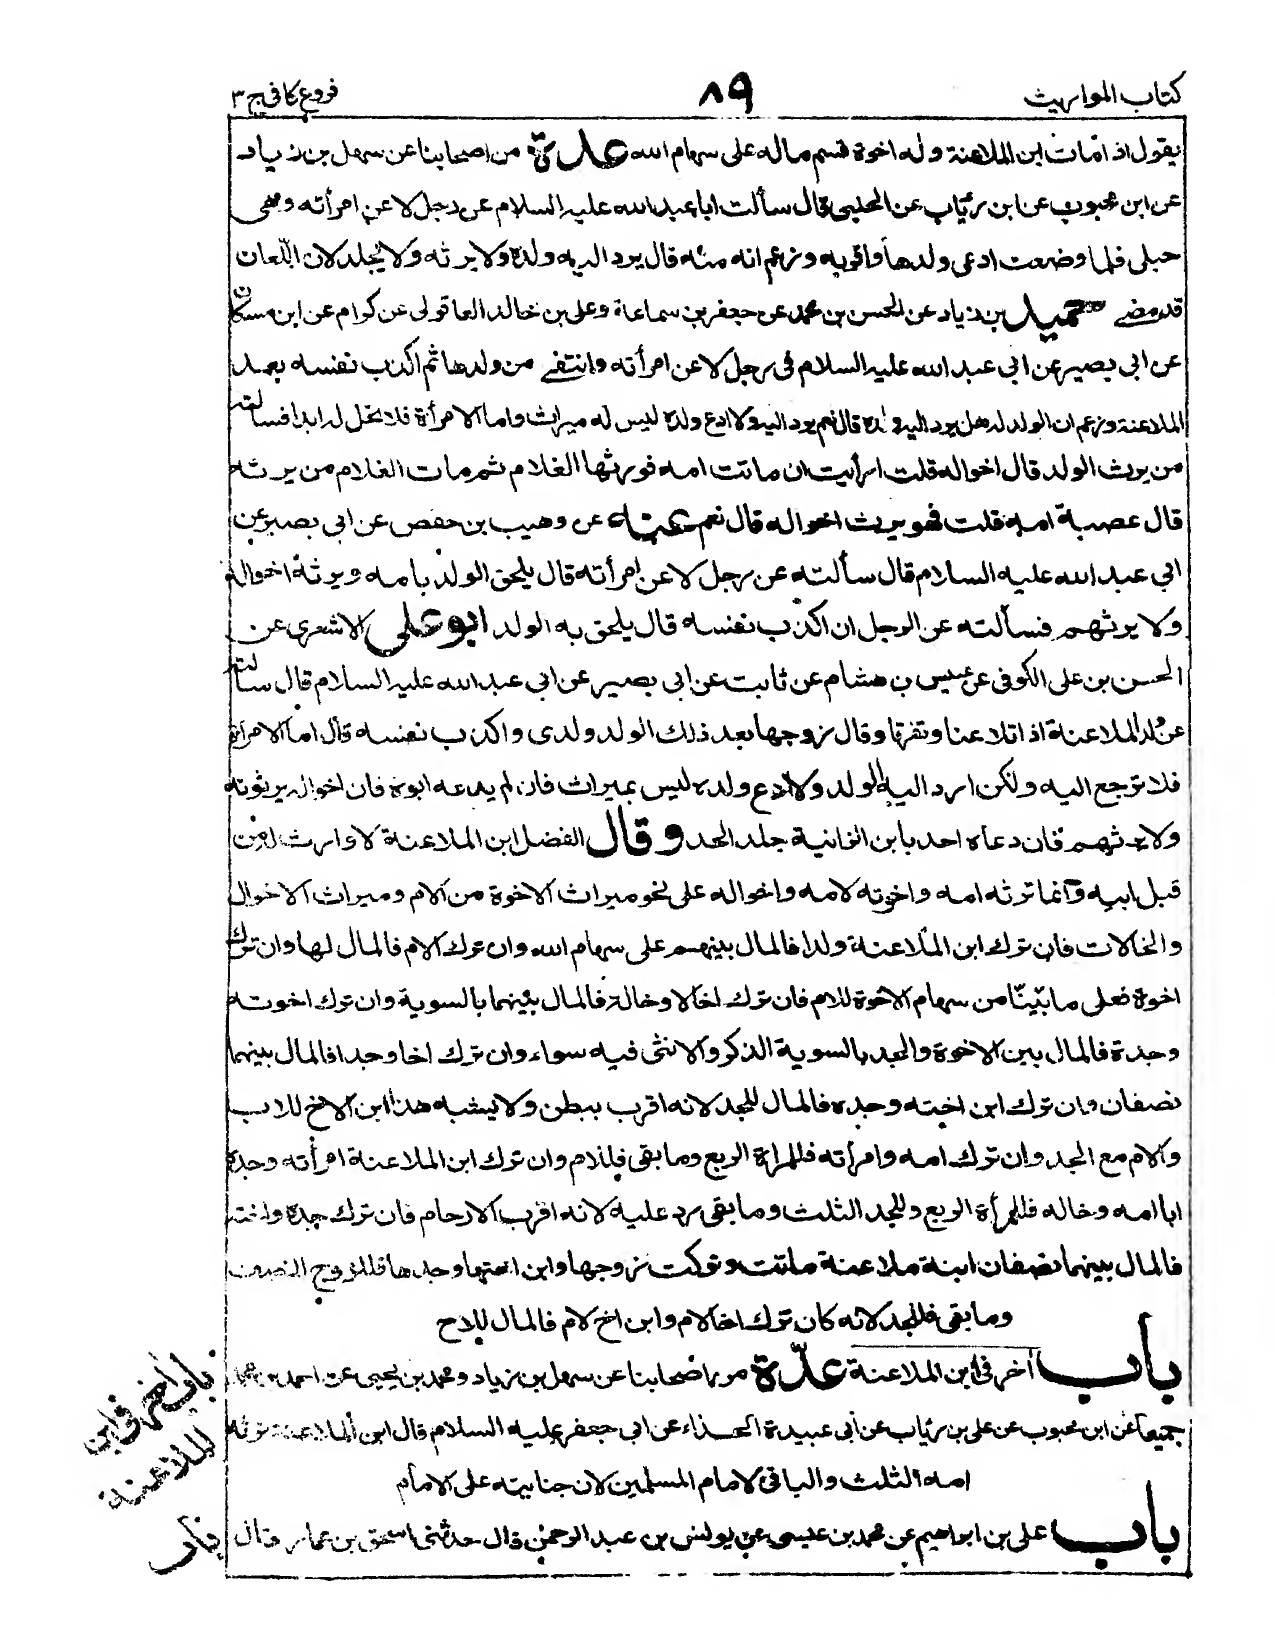 كتاب المواريث
٨٩
فروع كافي ج ٣
يقول اذا مات ابن الملاعنة وله اخوة قسم ماله على سهام الله عدة من اصحابنا عن سهل بن زياد
عن ابن محبوب عن ابن رئاب عن الحلبي قال سألت ابا عبد الله عليه السلام عن رجل لاعن امرأته وهي
حبلى فلما وضعت ادعى ولدها واقر به وزعم انه منه قال يرد اليه ولده ولا يرثه ولا يجلد لان اللعان
قد مضى حميد بن زياد عن الحسن بن محمد عن جعفر بن سماعة وعلي بن خالد العاقولي عن كرام عن ابن مسكان
عن ابي بصير عن ابي عبد الله عليه السلام في رجل لاعن امرأته وانتفى من ولدها ثم اكذب نفسه بعد
الملاعنة وزعم ان الولد له هل يرد اليه ولده قال نعم يرد اليه ولا ادع ولده ليس له ميراث واما الامرأة فلا تحل له ابدا فسألته
من يرث الولد قال اخواله قلت ارأيت ان ماتت امه فورثها الغلام ثم مات الغلام من يرثه
قال عصبة امه قلت فهو يرث اخواله قال نعم عنه عن وهيب بن حفص عن ابي بصير عن
ابي عبد الله عليه السلام قال سألته عن رجل لاعن امرأته قال يلحق الولد بامه ويرثه اخواله
ولا يرثهم فسألته عن الرجل ان اكذب نفسه قال يلحق به الولد ابو علي الاشعري عن
الحسن بن علي الكوفي عن عبيس بن هشام عن ثابت عن ابي بصير عن ابي عبد الله عليه السلام قال سألته
عن ولد الملاعنة اذا تلاعنا وتفرقا وقال زوجها بعد ذلك الولد ولدي واكذب نفسه قال اما الامرأة
فلا ترجع اليه ولكن ارد اليه الولد ولا ادع ولده ليس بميراث فان لم يدعه ابوه فان اخواله يرثونه
ولا يرثهم فان دعاه احد بابن الزانية جلد الحد وقال الفضل ابن الملاعنة لا وارث له من
قبل ابيه وانما ترثه امه واخوته لامه واخواله على نحو ميراث الاخوة من الام وميراث الاخوال
والخالات فان ترك ابن الملاعنة ولدا فالمال بينهم على سهام الله وان ترك الام فالمال لها وان ترك
اخوة فعلى ما بيّنّا من سهام الاخوة للام فان ترك خالا وخالة فالمال بينهما بالسوية وان ترك اخوته
وجده فالمال بين الاخوة والجد بالسوية الذكر والانثى فيه سواء وان ترك اخا وجدا فالمال بينهما
نصفان وان ترك ابن اخته وجده فالمال للجد لانه اقرب ببطن ولا يشبه هذا ابن الاخ للاب
والام مع الجد وان ترك امه وامرأته فللمرأة الربع وما بقي فللام وان ترك ابن الملاعنة امرأته وجده
ابا امه وخاله فللمرأة الربع وللجد الثلث وما بقي رد عليه لانه اقرب الارحام فان ترك جدة واخته
فالمال بينهما نصفان ابنة ملاعنة ماتت وتركت زوجها وابن اختها وجدها فللزوج النصف
وما بقي فللجد لانه كان ترك اخا لام وابن اخ لام فالمال للاخ
باب آخر في ابن الملاعنة عدّة من اصحابنا عن سهل بن زياد ومحمد بن يحيى عن احمد بن محمد
جميعا عن ابن محبوب عن علي بن رئاب عن أبي عبيدة الحذاء عن ابي جعفر عليه السلام قال ابن الملاعنة ترثه
امه الثلث والباقي لامام المسلمين لان جنايته على الامام
باب علي بن ابراهيم عن محمد بن عيسى عن يونس بن عبد الرحمن قال حدثني اسحق بن عمار قال
باب آخر في ابن
الملاعنة
باب